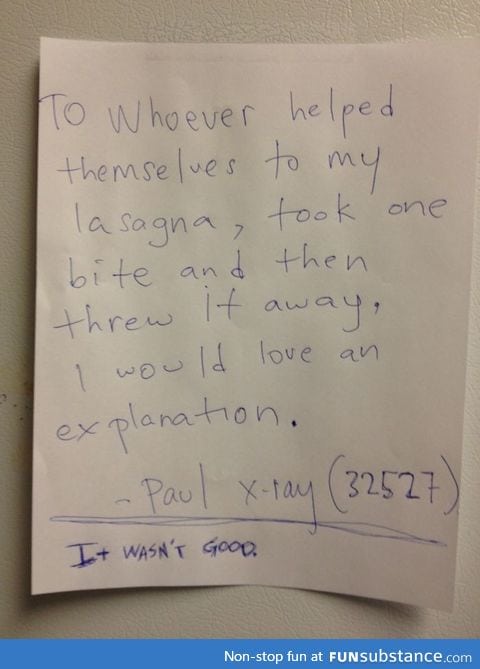 To Whoever helped
themselves to my
lasagna, took one
bite and then
threw it away,
I would love an
explanation.
- Paul x-ray (32527)
It WASN'T GOOD.
Non-stop fun at FUNsubstance.com